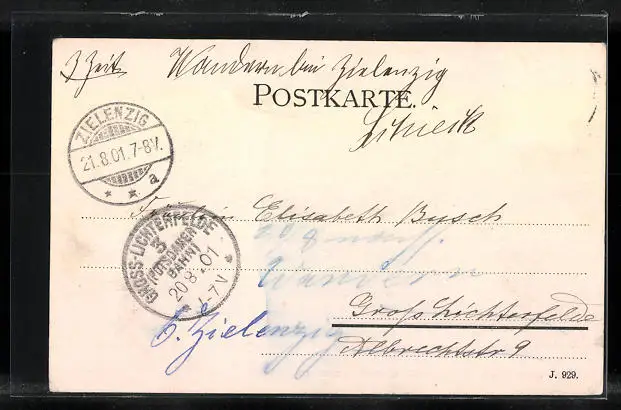 z Zeit Wandern bei Zielenzig
POSTKARTE.
ZIELENZIG
21.8.01.7-8V.
* * a
Fräulein Elisabeth Busch
GROSS-LICHTERFELDE 3
(POTSDAMER BAHN)
20.8.01
Wandern
b. Zielenzig
Groß Lichterfelde
Albrechtstr 9
J. 929.